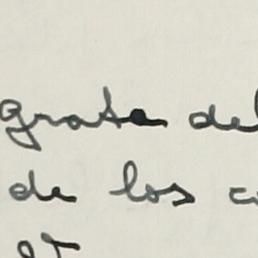 grata del
de los c